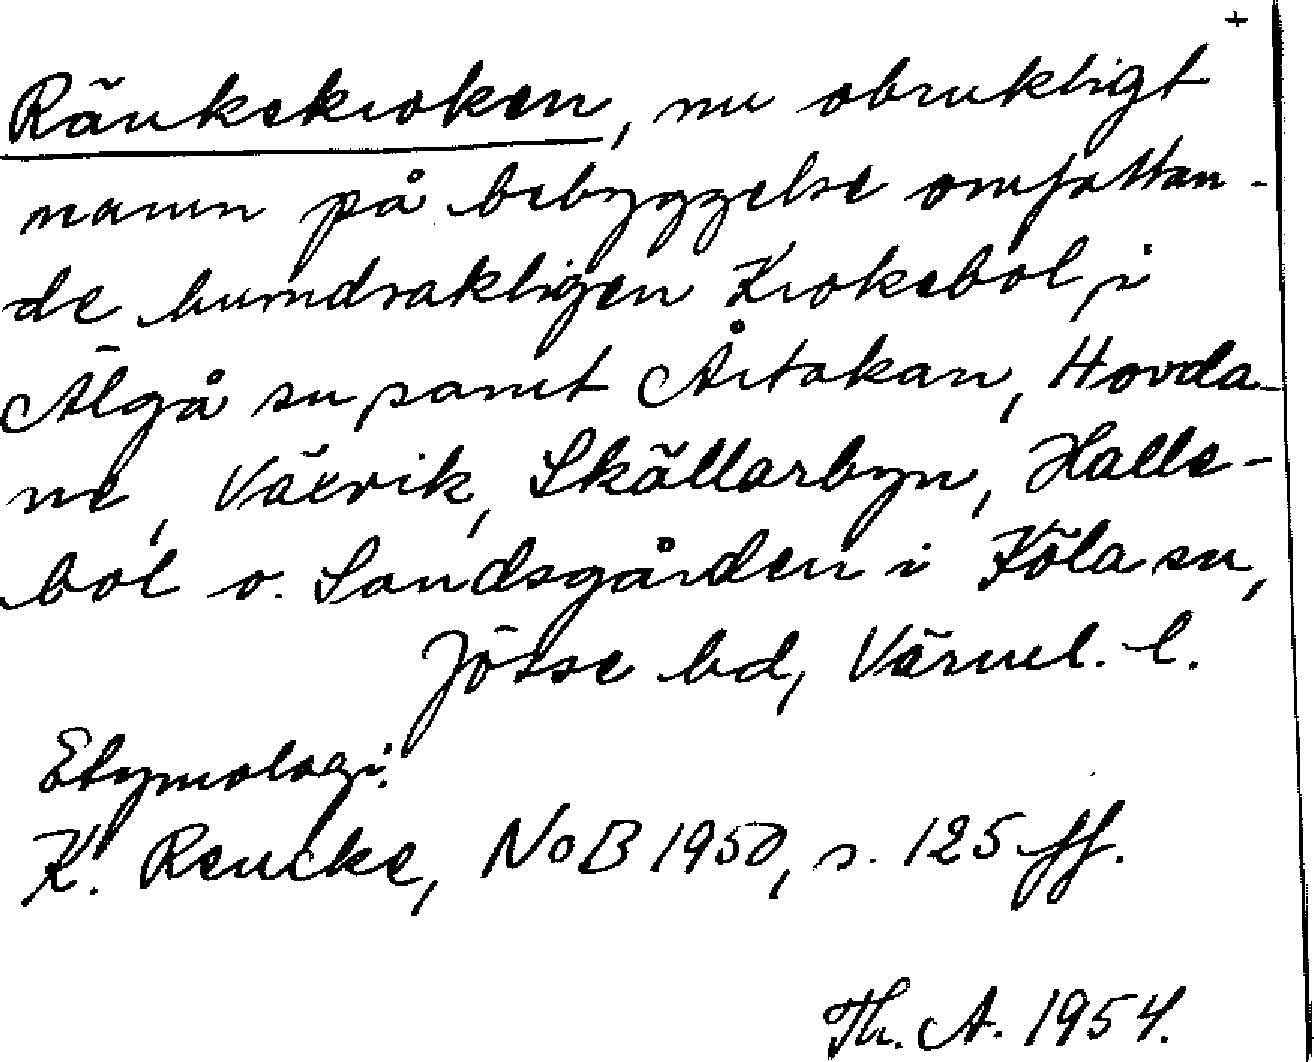 +
Ränkekroken, nu obrukligt
namn på bebyggelse omfattan-
de hemdraktigen Krokebol, i
Älgå sn samt Årtakan, Hovda-
ne, Välvik, Skällarbyn, Halle-
bol o. Sandsgården i Köla sn,
Jösse hd, Värml. l.
Etymologi.
K. Rencke, NoB 1950, s. 125 ff.
Th. A. 1954.